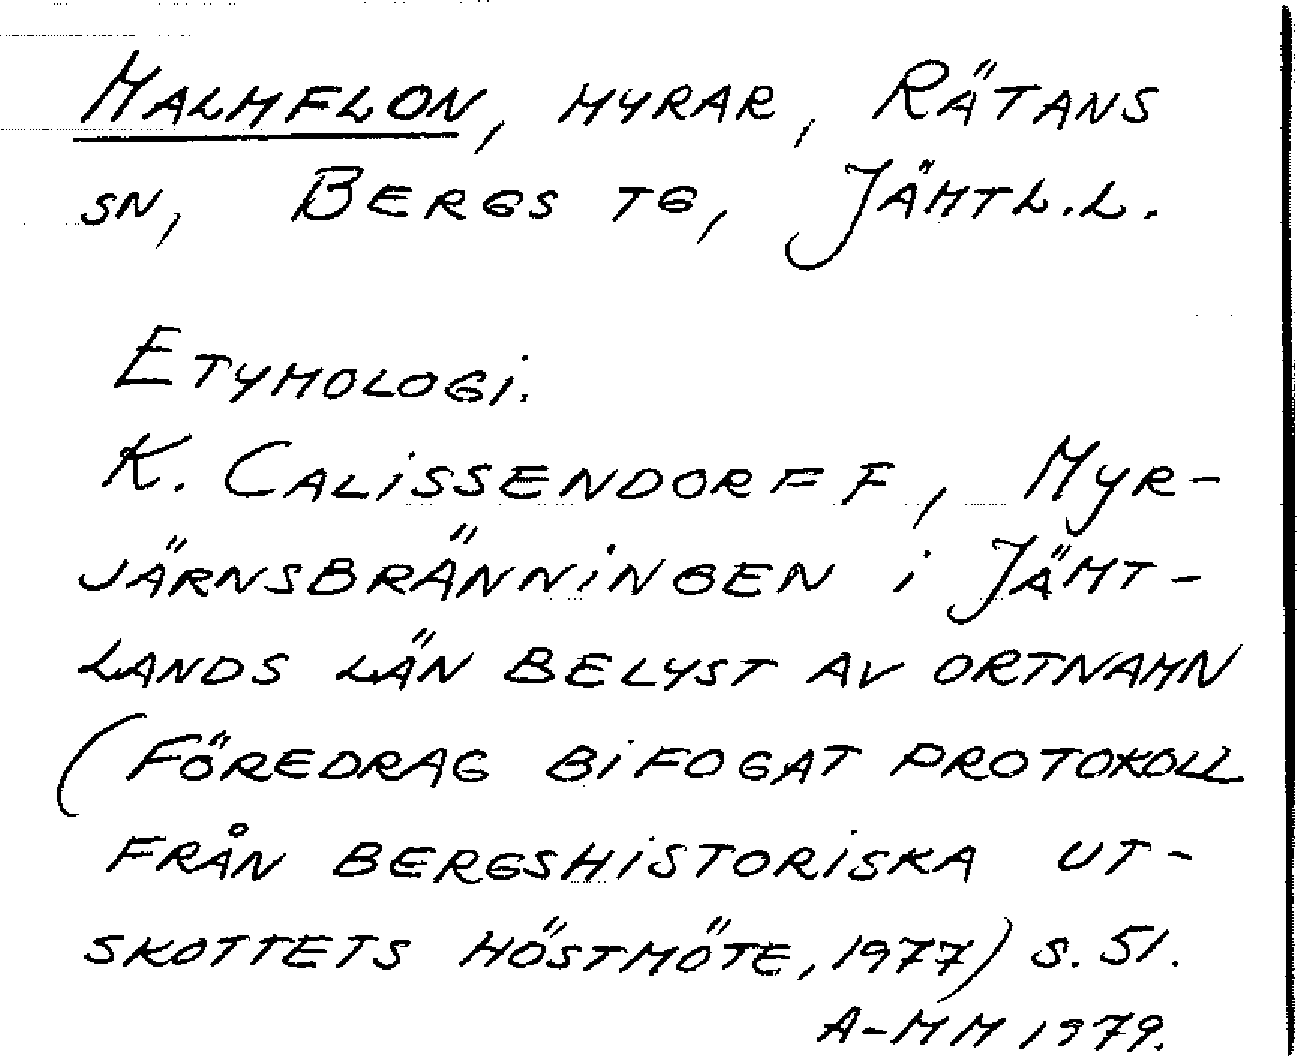 MALMFLON, MYRAR, RÄTANS
SN, BERGS TG, JÄMTL.L.
ETYMOLOGI.
K. CALISSENDORFF, MYR-
JÄRNSBRÄNNINGEN I JÄMT-
LANDS LÄN BELYST AV ORTNAMN
(FÖREDRAG BIFOGAT PROTOKOLL
FRÅN BERGSHISTORISKA UT-
SKOTTETS HÖSTMÖTE, 1977) S. 51.
A-MM 1979.